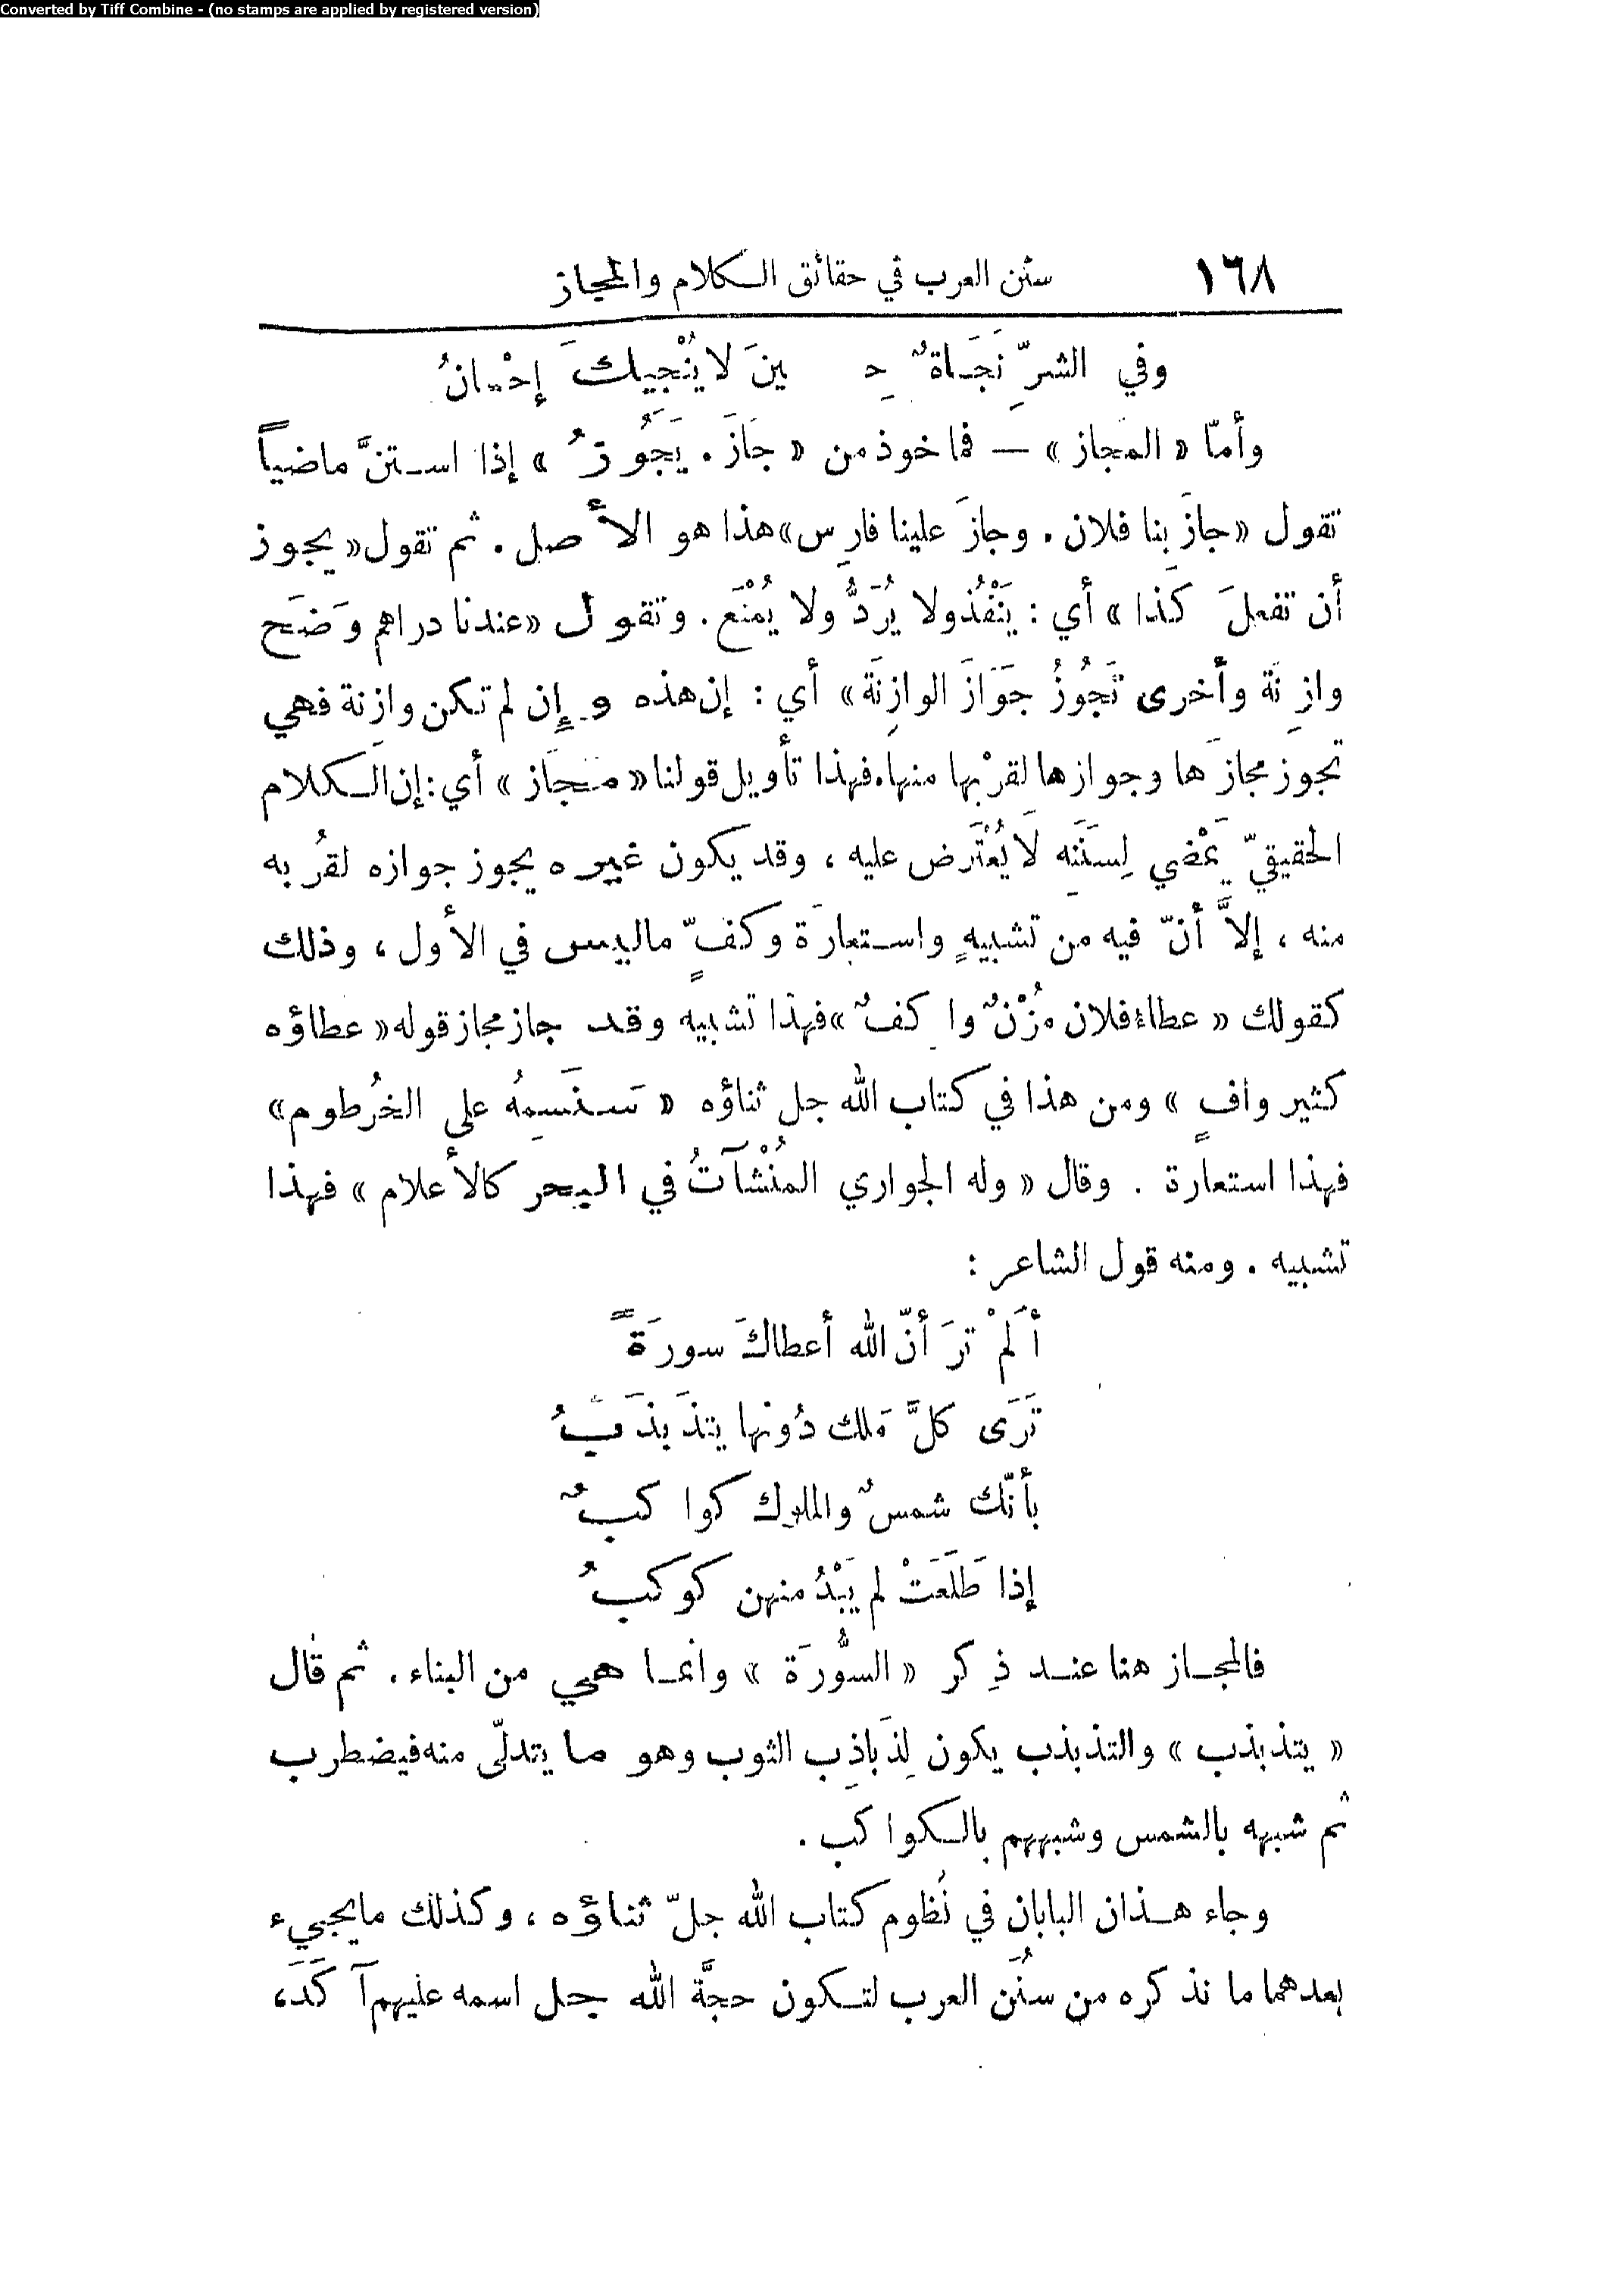 Converted by Tiff Combine - (no stamps are applied by registered version)
١٦٨ سنن العرب في حقائق الكلام والمجاز
وفي الشرِّ نَجَاةٌ حِينَ لا يُنْجِيكَ إحْسانُ
وأمّا «المَجاز» — فمأخوذ من «جَازَ. يَجُوزُ» إذا استنَّ ماضياً
تقول «جازَ بنا فلان. وجازَ علينا فارِس» هذا هو الأصل. ثم تقول «يجوز
أن تفعلَ كَذا» أي: يَنْفُذُ ولا يُرَدُّ ولا يُمْنَع. وتقول «عندنا دراهم وَضَح
وازِنَة وأخرى تَجُوزُ جَوَازَ الوازِنَة» أي: إن هذه وإن لم تكن وازِنة فهي
تجوز مجازَها وجوازها لقرْبها منها. فهذا تأويل قولنا «مَجَاز» أي: إن الكلام
الحقيقيّ يَمْضي لِسَنَنِه لا يُعْتَرَض عليه، وقد يكون غيره يجوز جوازه لقُربه
منه، إلاَّ أنّ فيه من تشبيهٍ واستعارَة وكفٍّ ما ليس في الأول، وذلك
كقولك «عطاء فلان مُزْنٌ واكفٌ» فهذا تشبيه وقد جاز مجاز قوله «عطاؤه
كثير وافٍ» ومن هذا في كتاب الله جل ثناؤه «سَنَسِمهُ على الخُرطوم»
فهذا استعارة. وقال «وله الجواري المُنْشَآتُ في البحر كالأعلام» فهذا
تشبيه. ومنه قول الشاعر:
أَلمْ ترَ أنّ الله أعطاكَ سورَةً
تَرَى كلَّ مَلك دُونها يتذَبذَبُ
بأنّك شمسٌ والملوك كواكبٌ
إذا طَلَعَتْ لم يَبْدُ منهن كوكبُ
فالمجاز هنا عند ذِكر «السُّورَة» وانما هي من البناء. ثم قال
«يتذبذب» والتذبذب يكون لِذَباذِب الثوب وهو ما يتدلّى منه فيضطرب
ثم شبهه بالشمس وشبههم بالكواكب.
وجاء هذان البابان في نُظوم كتاب الله جلّ ثناؤه، وكذلك ما يجيء
بعدهما ما نذكره من سنُن العرب لتكون حجَّة الله جل اسمه عليهم آكَدَ،